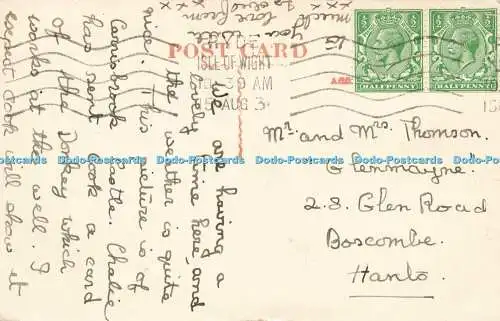 We are having a
lovely time here, and
the weather is quite
nice. This picture is of
Carisbrook Castle. Chalie
has sent Cook a card
of the Donkey which
works at the well. I
expect Cook will show it
you. With
much love from
x x x
x x
POST CARD
ISLE OF WIGHT
30 AM
15 AUG 3
HALFPENNY
HALFPENNY
Mr. and Mrs. Thomson.
"Glenmayne".
28. Glen Road
Boscombe.
Hants.
Dodo-Postcards Dodo-Postcards Dodo-Postcards Dodo-Postcards